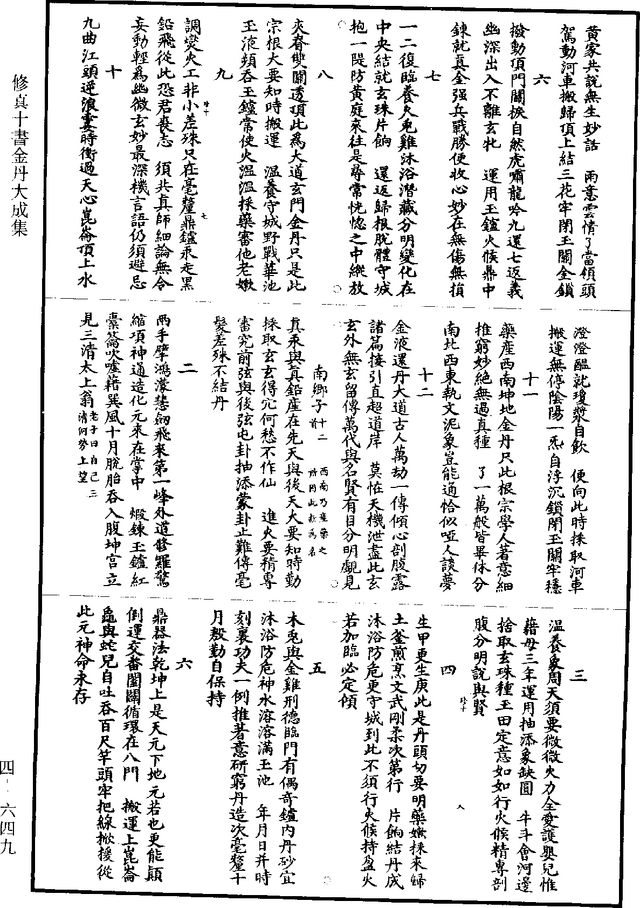 黃家共說無生妙話　兩意雲情了當領頭
駕動河車搬歸頂上結三花牢閉玉關金鎖
六
撥動頂門關捩自然虎嘯龍吟九還七返義
幽深出入不離玄牝　運用玉鑪火候鼎中
鍊就真金强兵戰勝便收心妙在無傷無損
七
一二復臨養火兎雞沐浴潛藏分明變化在
中央結就玄珠片餉　還返歸根脫體守城
抱一隄防黃庭來往是尋常恍惚之中縱放
八
夾脊雙關透頂此爲大道玄門金丹只是此
宗根大要知時搬運　溫養守城野戰華池
玉液頻吞玉鑪常使火溫溫採藥審他老嫩
九
調燮火工非小差殊只在毫釐鼎鑪汞走黑
鉛飛從此恐君喪志　須共真師細論無令
妄動輕爲幽微玄妙最深機言語仍須避忌
十
九曲江頭逆浪霎時衝過天心崑崙頂上水
澄澄醞就瓊漿自飲　便向此時採取河車
搬運無停陰陽一炁自浮沉鎖閉玉關牢穩
十一
藥產西南坤地金丹只此根宗學人著意細
推窮妙絕無過真種　了一萬般皆畢休分
南北西東執文泥象豈能通恰似啞人談夢
十二
金液還丹大道古人萬劫一傳傾心剖腹露
諸篇接引直超道岸　莫怪天機泄盡此玄
玄外無玄留傳萬代與名賢有目分明覷見
南鄉子十二首　西南乃產藥之所因此詺爲名
真汞與真鉛產在先天與後天大要知時勤
採取玄玄得穴何愁不作仙　進火要精專
審究前弦與後弦屯卦抽添蒙卦止難傳毫
髮差殊不結丹
二
兩手擘鴻濛慧劒飛來第一峰外道修羅驚
縮項神通造化元來在掌中　煅鍊玉鑪紅
橐籥吹噓藉巽風十月脫胎吞入腹坤宮立
見三清太上翁老子曰自己三清何勞上望
三
溫養象周天須要微微火力全愛護嬰兒惟
藉母三年運用抽添象缺圓　牛斗會河邊
捨取玄珠種玉田定意如如行火候精專剖
腹分明說與賢
四
生甲更生庚此是丹頭切要明藥嫩採來歸
土釜煎烹文武剛柔次第行　片餉結丹成
沐浴防危更守城到此不須行火候持盈火
若加臨必定傾
五
木兎與金雞刑德臨門有偶奇鑪內丹砂宜
沐浴防危神水溶溶滿玉池　年月日并時
刻裏功夫一例推著意研窮丹造次毫釐十
月殷勤自保持
六
鼎器法乾坤上是天元下地元若也更能顛
倒運交番闔闢循環在八門　搬運上崑崙
龜與蛇兒自吐吞百尺竿頭牢把線掀援從
此元神命永存
修真十書金丹大成集
四-六四九